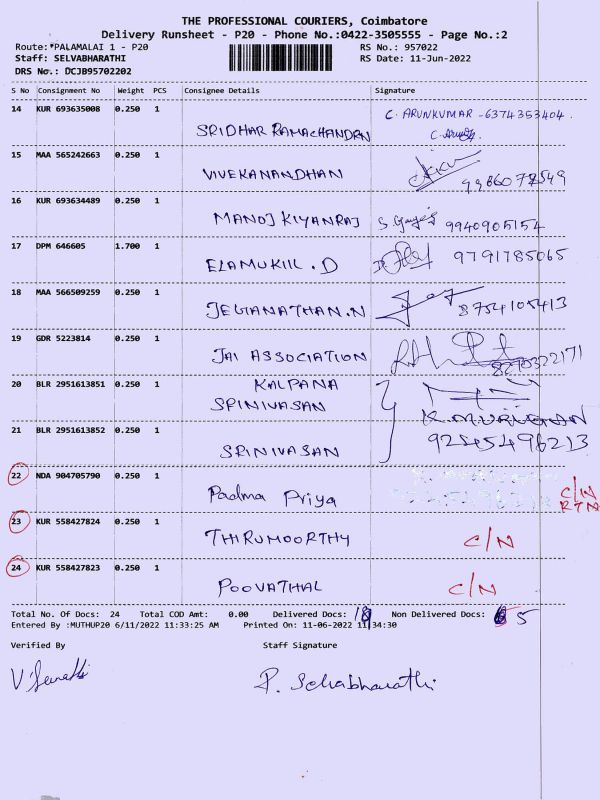 THE PROFESSIONAL COURIERS, Coimbatore
Delivery Runsheet - P20 - Phone No.:0422-3505555 - Page No.:2
Route:*PALAMALAI 1 - P20 RS No.: 957022
Staff: SELVABHARATHI RS Date: 11-Jun-2022
DRS No.: DCJB95702202
S No Consignment No Weight PCS Consignee Details Signature
14 KUR 693635008 0.250 1 SRIDHAR RAMACHANDRN C. ARUNKUMAR -6374353404.
15 MAA 565242663 0.250 1 VIVEKANANDHAN
16 KUR 693634489 0.250 1 MANOJ KIYANRAJ 9940905154
17 DPM 646605 1.700 1 ELAMUKIIL.D 9791785065
18 MAA 566509259 0.250 1 JEGANATHAN.N 8754105413
19 GDR 5223814 0.250 1 JAI ASSOCIATION 8270322171
20 BLR 2951613851 0.250 1 KALPANA
SRINIVASAN K.MURUGAN
21 BLR 2951613852 0.250 1 SRINIVASAN 9245496213
22 NDA 904705790 0.250 1 Padma Priya C/N
RTN
23 KUR 558427824 0.250 1 THIRUMOORTHY C/N
24 KUR 558427823 0.250 1 POOVATHAL C/N
Total No. Of Docs: 24 Total COD Amt: 0.00 Delivered Docs: Non Delivered Docs: 5
Entered By :MUTHUP20 6/11/2022 11:33:25 AM Printed On: 11-06-2022 11:34:30
Verified By Staff Signature
P. Selvabharathi